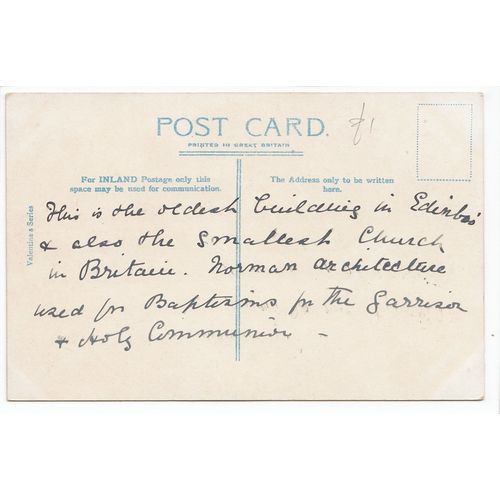 POST CARD.
PRINTED IN GREAT BRITAIN
£1
For INLAND Postage only this
space may be used for communication.
The Address only to be written
here.
Valentine's Series
This is the oldest building in Edinbro'
& also the smallest Church
in Britain. Norman architecture
used for Baptisms for the Garrison
& Holy Communion –